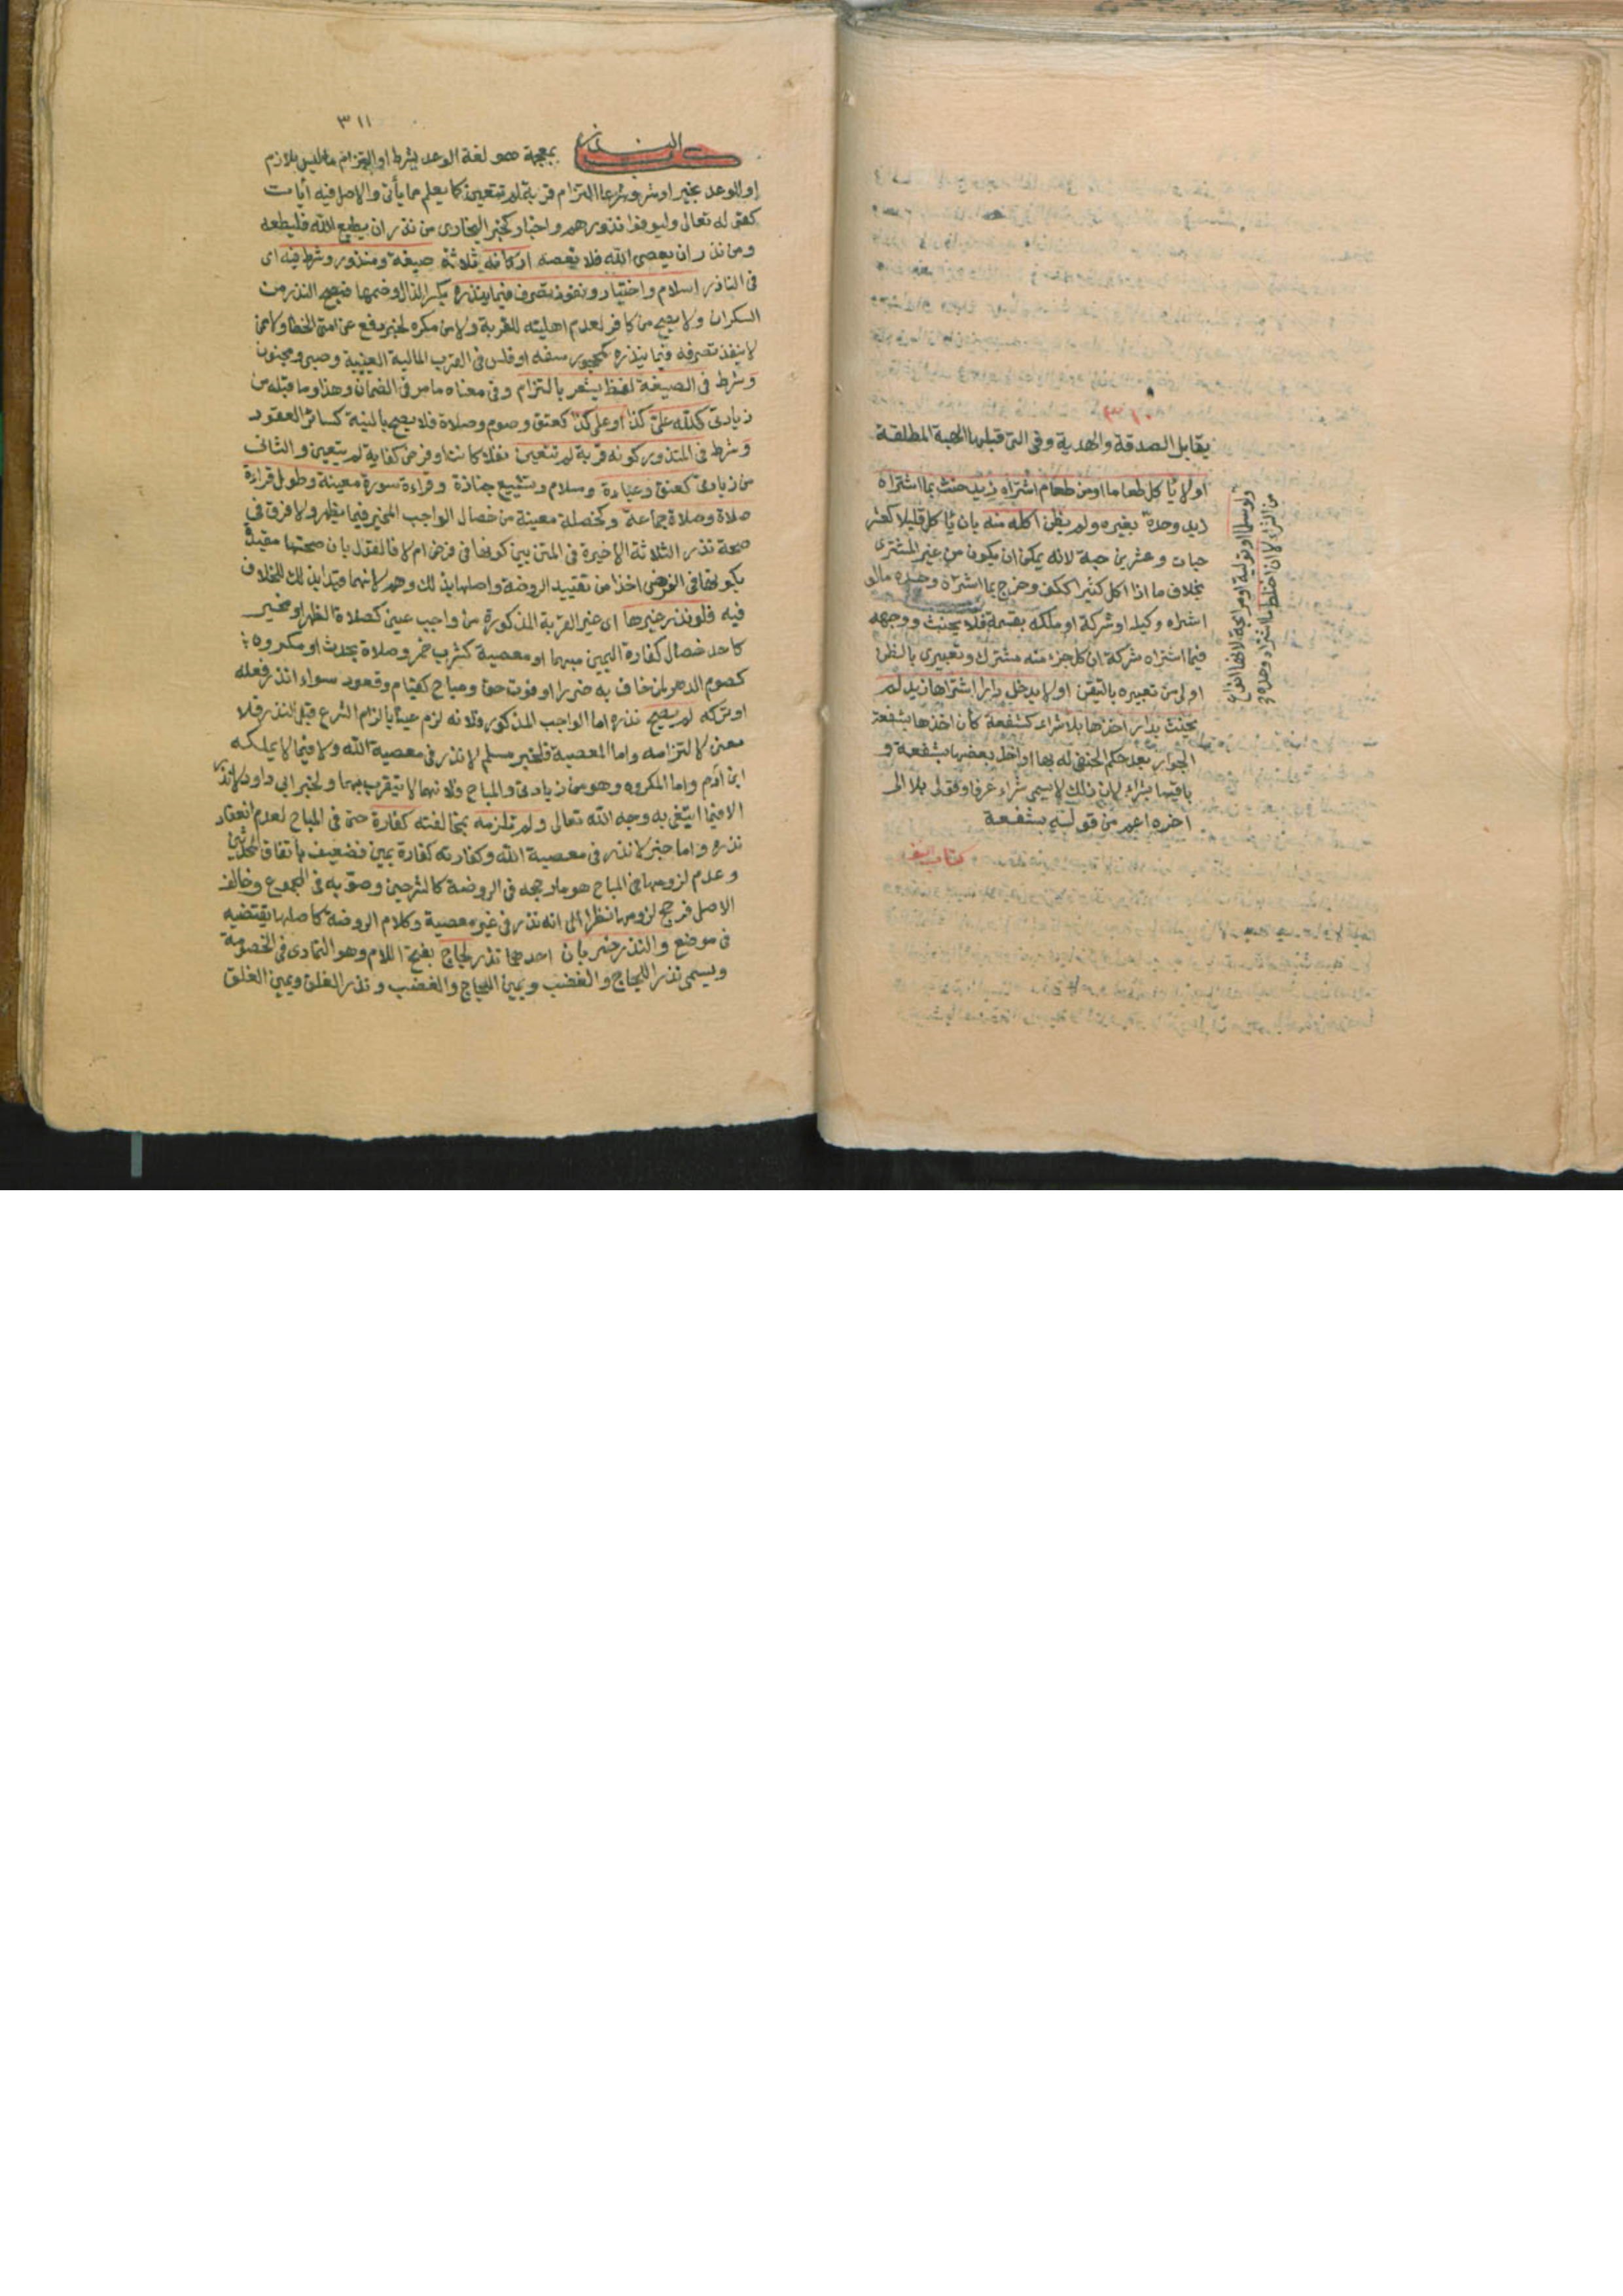 يقابل الصدقة والهدية وفى التى قبلها الهبة المطلقة
او لا ياكل طعاما او من طعام اشتراه زيد حنث بما اشتراه
زيد وحده بغيره ولم يظن اكله منه بان ياكل قليلا كعشر
حبات وعشرين حبة لانه يمكن ان يكون من غير المشترى
بخلاف ما اذا اكل كثيرا ككف وخرج بما اشتراه وحده مالو
اشتراه وكيله او شركة او ملكه بقسمة فلا يحنث ووجهه
فيما اشتراه شركة ان كل جزء منه مشترك وتعبيرى بالظن
اولى من تعبيره بالتيقن او لا يدخل دارا اشتراها زيد لم
يحنث بدار اخذها بلا شراء كشفعة كان اخذها بشفعة
الجوار بعد حكم الحنفى له بها او اخذ بعضها بشفعة و
باقيها بشراء لان ذلك لا يسمى شراء عرفا وقولى بلا الى
اخره اعم من قوله بشفعة
كتاب
ولو سلما او تولية او مرابحة لانها انواع
من الشراء لا ان اختلط ما اشتراه وحده
٣١١
النذر بمعجمة هو لغة الوعد بشرط او التزام ما ليس بلازم
او الوعد بخير او شر وشرعا التزام قربة لم تتعين كما يعلم مما يأتى والاصل فيه آيات
كقوله تعالى وليوفوا نذورهم واخبار كخبر البخارى من نذر ان يطيع الله فليطعه
ومن نذر ان يعصى الله فلا يعصه اركانه ثلاثة صيغة ومنذور وشرط فيه اى
فى الناذر اسلام واختيار ونفوذ تصرف فيما ينذره بكسر الذال وضمها فيصح النذر من
السكران ولا يصح من كافر لعدم اهليته للقربة ولا من مكره لخبر رفع عن امتى الخطا ولا ممن
لا ينفذ تصرفه فيما ينذره كمحجور سفه او فلس فى القرب المالية العينية وصبى ومجنون
وشرط فى الصيغة لفظ يشعر بالتزام وفى معناه ما مر فى الضمان وهذا وما قبله من
زيادتى كلله على كذا او على كذا كعتق وصوم وصلاة فلا يصح بالنية كسائر العقود
وشرط فى المنذور كونه قربة لم تتعين نفلا كانت او فرض كفاية لم يتعين والثانى
من زيادتى كعتق وعيادة وسلام وتشييع جنازة وقراءة سورة معينة وطول قراءة
صلاة وصلاة جماعة وكخصلة معينة من خصال الواجب المخير فيما يظهر ولا فرق فى
صحة نذر الثلاثة الاخيرة فى المتن بين كونها فى فرض ام لا فالقول بان صحتها مقيدة
بكونها فى الفرض اخذا من تقييد الروضة واصلها بذلك وهم لانهما قيدا بذلك للخلاف
فيه فلو نذر غيرها اى غير القربة المذكورة من واجب عين كصلاة الظهر او مخير
كاحد خصال كفارة اليمين مبهما او معصية كشرب خمر وصلاة بحدث او مكروه
كصوم الدهر لمن خاف به ضررا او فوت حق او مباح كقيام وقعود سواء انذر فعله
او تركه لم يصح نذره اما الواجب المذكور فلانه لزم عينا بالزام الشرع قبل النذر فلا
معنى لالتزامه واما المعصية فلخبر مسلم لا نذر فى معصية الله ولا فيما لا يملكه
ابن آدم واما المكروه وهو من زيادتى والمباح فلانهما لا يتقرب بهما ولخبر ابى داود لا نذر
الا فيما ابتغى به وجه الله تعالى ولم تلزمه بمخالفته كفارة حتى فى المباح لعدم انعقاد
نذره واما خبر لا نذر فى معصية الله وكفارته كفارة يمين فضعيف باتفاق المحدثين
وعدم لزومها فى المباح هو ما رجحه فى الروضة كالشرحين وصوبه فى المجموع وخالف
الاصل فرجح لزومها نظرا الى انه نذر فى غير معصية وكلام الروضة كاصلها يقتضيه
فى موضع والنذر ضربان احدهما نذر لجاج بفتح اللام وهو التمادى فى الخصومة
ويسمى نذر اللجاج والغضب ويمين اللجاج والغضب ونذر الغلق ويمين الغلق